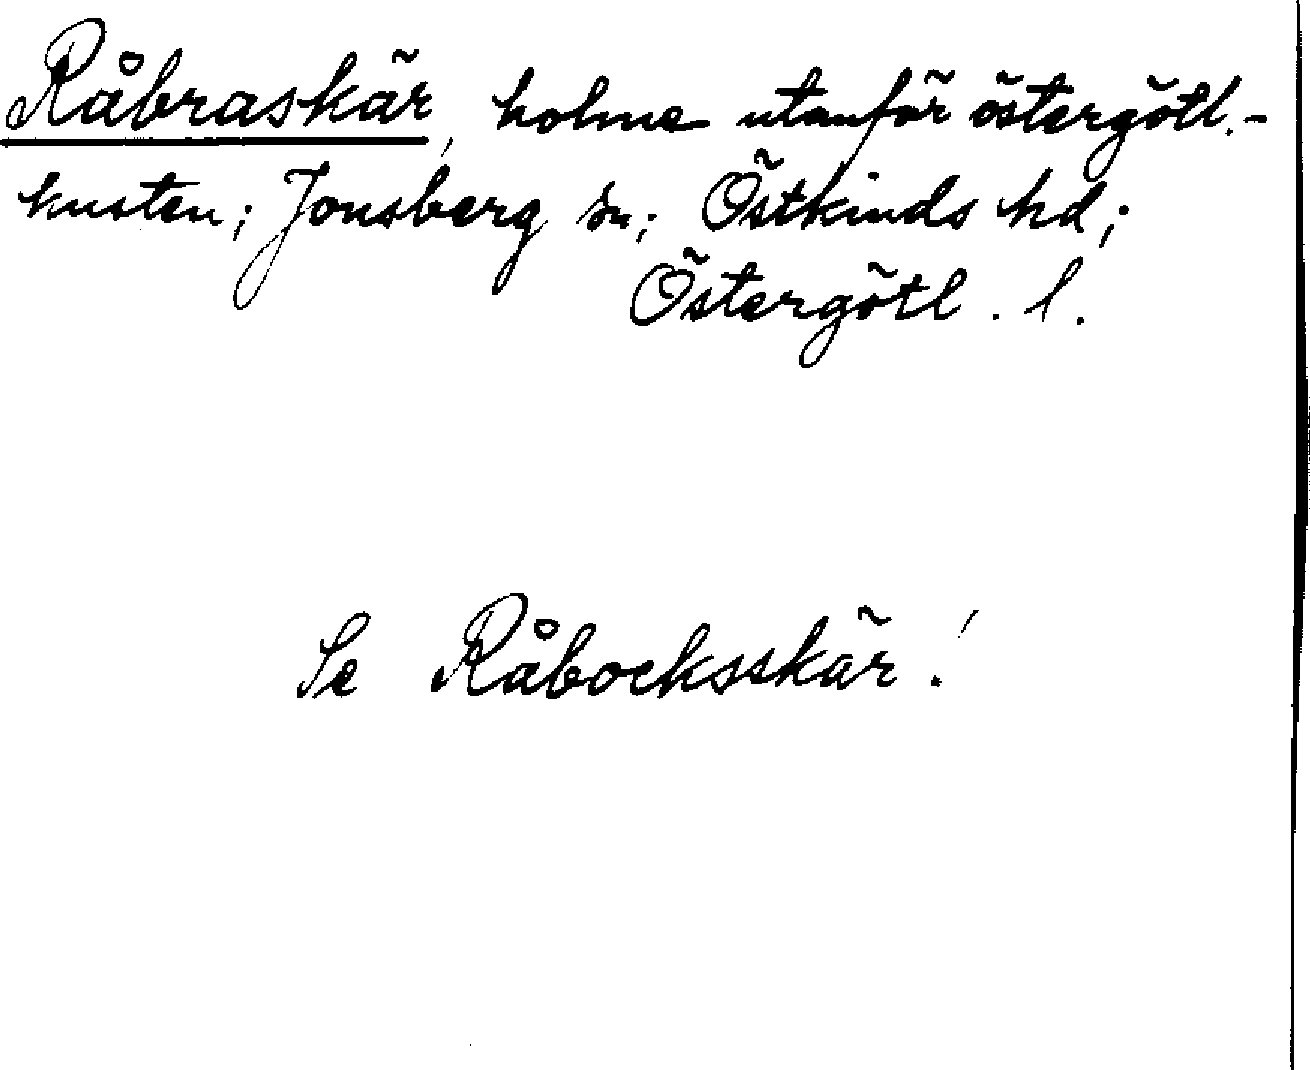 Råbraskär, holme utanför östergötl.-
kusten; Jonsberg sn; Östkinds hd;
Östergötl. l.
Se Råbocksskär!